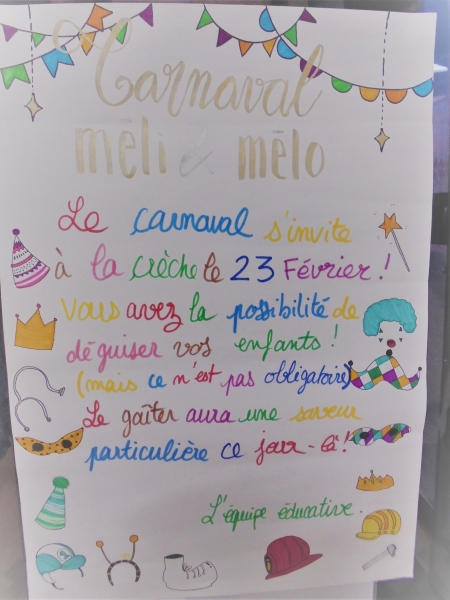 Carnaval
méli & mélo
Le carnaval s'invite
à la crèche le 23 Février !
Vous avez la possibilité de
déguiser vos enfants !
(mais ce n'est pas obligatoire)
Le goûter aura une saveur
particulière ce jour-là !
L'équipe éducative.